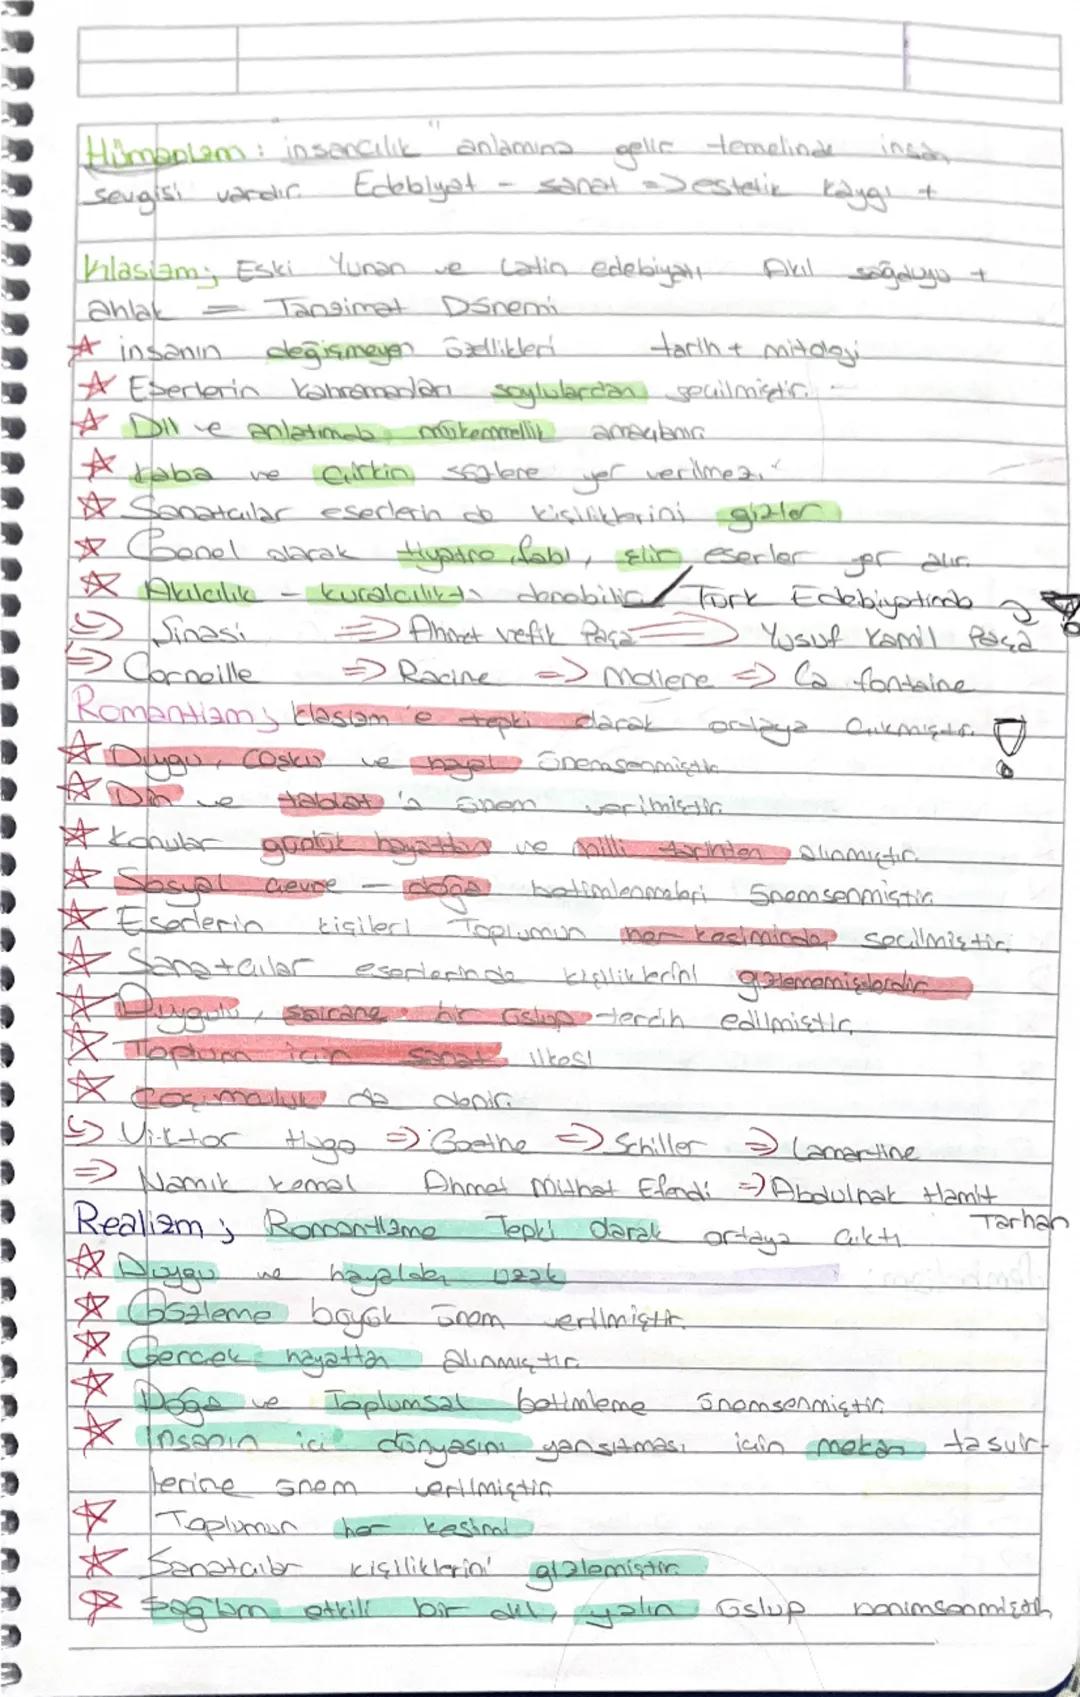 Hümanizm : insancılık" anlamına gelir temelinde insan
sevgisi vardır. Edebiyat - sanat => estetik kaygı +
Klasizm; Eski Yunan ve Latin edebiyatı Akıl sağduyu +
ahlak = Tanzimat Dönemi
☆ insanın değişmeyen özellikleri tarih + mitoloji
☆ Eserlerin kahramanları soylulardan seçilmiştir.
☆ Dil ve anlatımda mükemmellik amaçlanır
☆ kaba ve Çirkin sözlere yer verilmez.
☆ Sanatçılar eserlerin de kişiliklerini gizler
☆ Genel olarak tiyatro, fabl, şiir eserler yer alır.
☆ Akılcılık - kuralcılıkta denebilir / Türk Edebiyatında
=> Şinasi => Ahmet vefik Paşa => Yusuf Kamil Paşa
=> Corneille => Racine => Moliere => La fontaine
Romantizm; klasizm'e tepki olarak ortaya Çıkmıştır. !
☆ Duygu, coşku ve hayal önemsenmiştir
☆ Din ve tabiat'a önem verilmiştir.
☆ Konular günlük hayattan ve milli tarihten alınmıştır.
☆ Sosyal çevre - doğa betimlenmeleri önemsenmiştir
☆ Eserlerin kişileri Toplumun her kesiminden seçilmiştir.
☆ Sanatçılar eserlerinde kişiliklerini gizlememişlerdir
☆ Duygulu, şairane bir üslup tercih edilmiştir.
☆ Toplum için sanat ilkesi
☆ Coşumculuk da denir.
=> Viktor Hugo => Goethe => Schiller => Lamartine
=> Namık kemal Ahmet Mithat Efendi => Abdulhak Hamit
Tarhan
Realizm; Romantizme Tepki olarak ortaya çıktı
☆ Duygu ve hayalden uzak
☆ Gözleme büyük önem verilmiştir.
☆ Gerçek hayattan alınmıştır.
☆ Doğa ve Toplumsal betimleme önemsenmiştir
☆ İnsanın içi dünyasını yansıtması için mekan tasvir-
lerine önem verilmiştir
☆ Toplumun her kesimi
☆ Sanatçılar kişiliklerini gizlemiştir.
☆ Sağlam etkili bir dil, yalın üslup benimsenmiştir